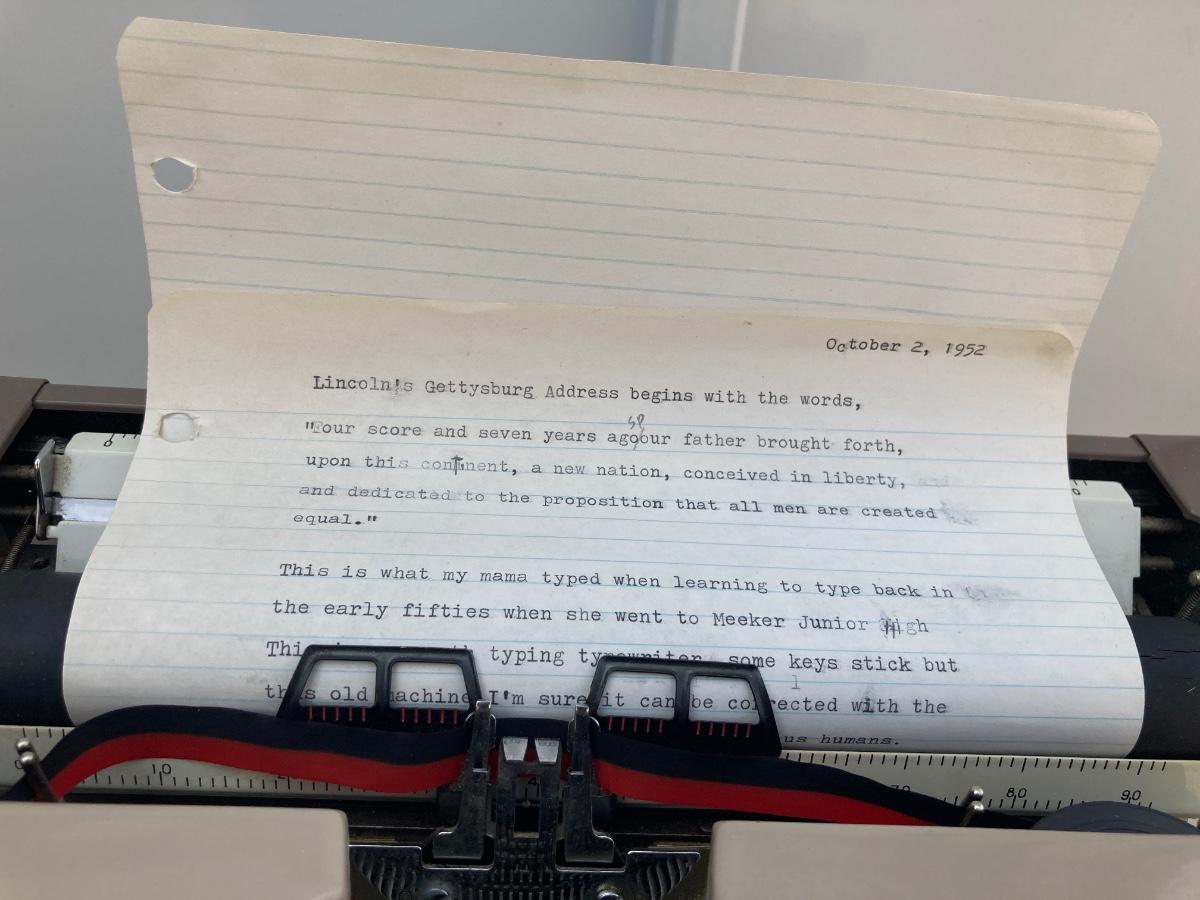 October 2, 1952
Lincoln's Gettysburg Address begins with the words,
sp
"Four score and seven years ago our father brought forth,
upon this continent, a new nation, conceived in liberty,
and dedicated to the proposition that all men are created
equal."
This is what my mama typed when learning to type back in
the early fifties when she went to Meeker Junior High
typing typewriter, some keys stick but
this old machine I'm sure it can be corrected with the
us humans.
10
80
90